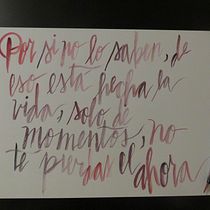 Por si no lo saben, de
eso está hecha la
vida, solo de
momentos, no
te pierdas el ahora